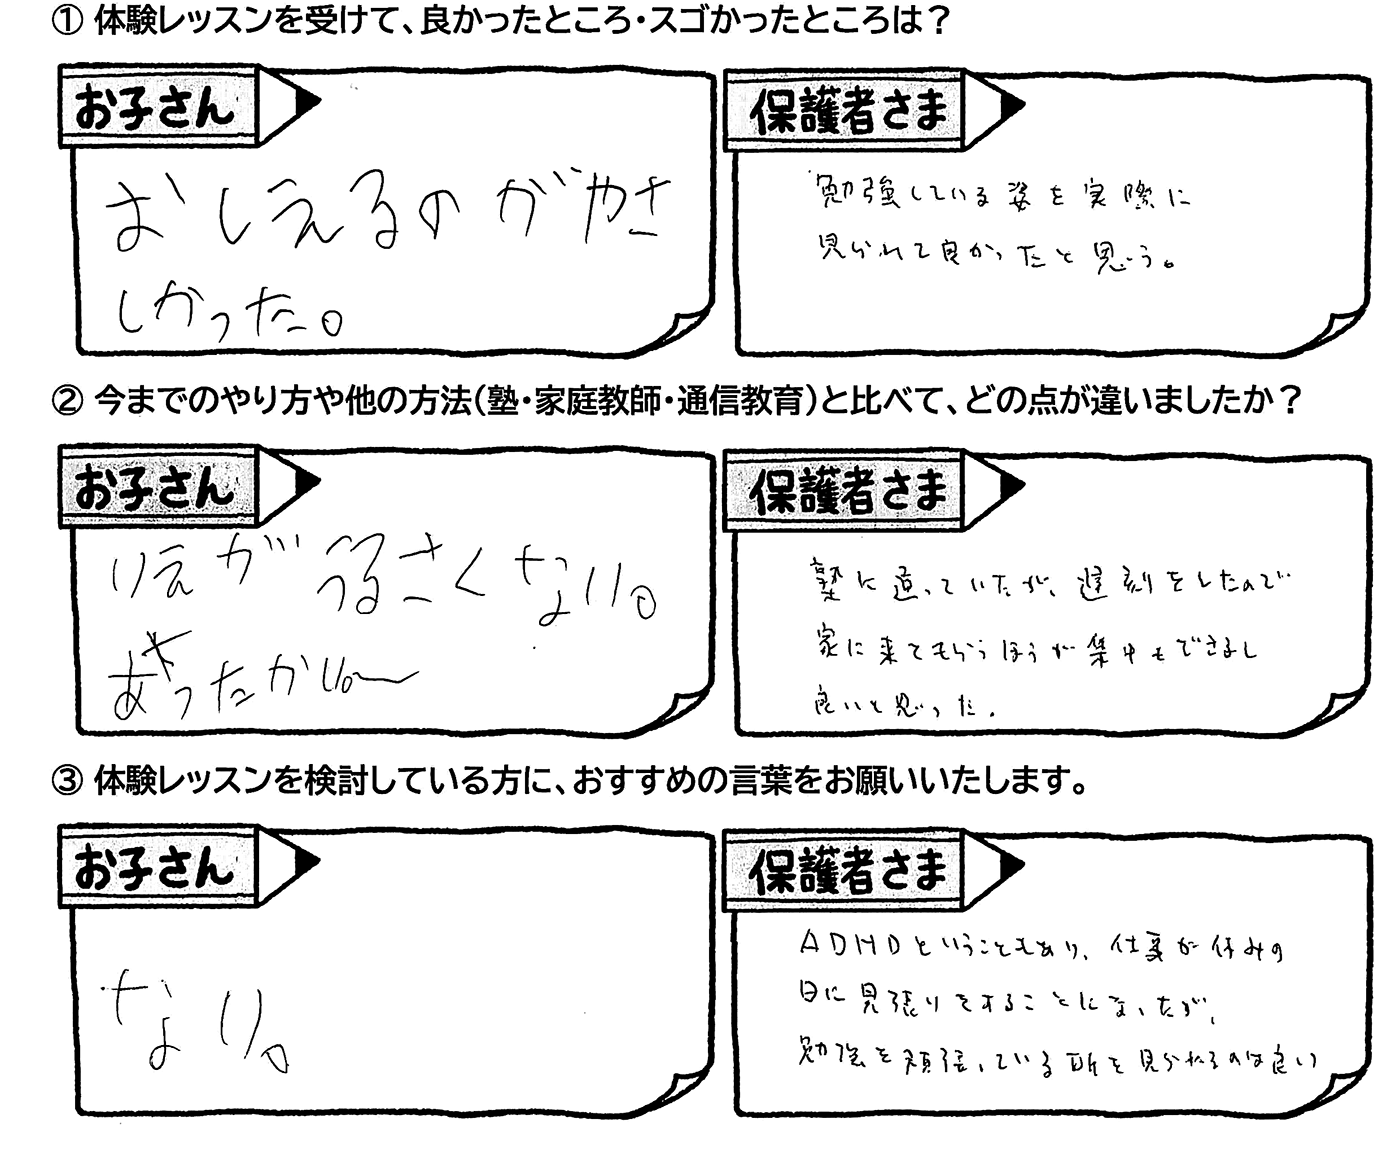 ① 体験レッスンを受けて、良かったところ・スゴかったところは？
お子さん
おしえるのがやさ
しかった。
保護者さま
勉強している姿を実際に
見られて良かったと思う。
② 今までのやり方や他の方法（塾・家庭教師・通信教育）と比べて、どの点が違いましたか？
お子さん
いえがうるさくない。
あったかい。
保護者さま
塾に通っていたが、遅刻をしたので
家に来てもらうほうが集中もできるし
良いと思った。
③ 体験レッスンを検討している方に、おすすめの言葉をお願いいたします。
お子さん
ない。
保護者さま
ADHDということもあり、仕事が休みの
日に見張りをすることになったが、
勉強を頑張っている所を見られるのは良い